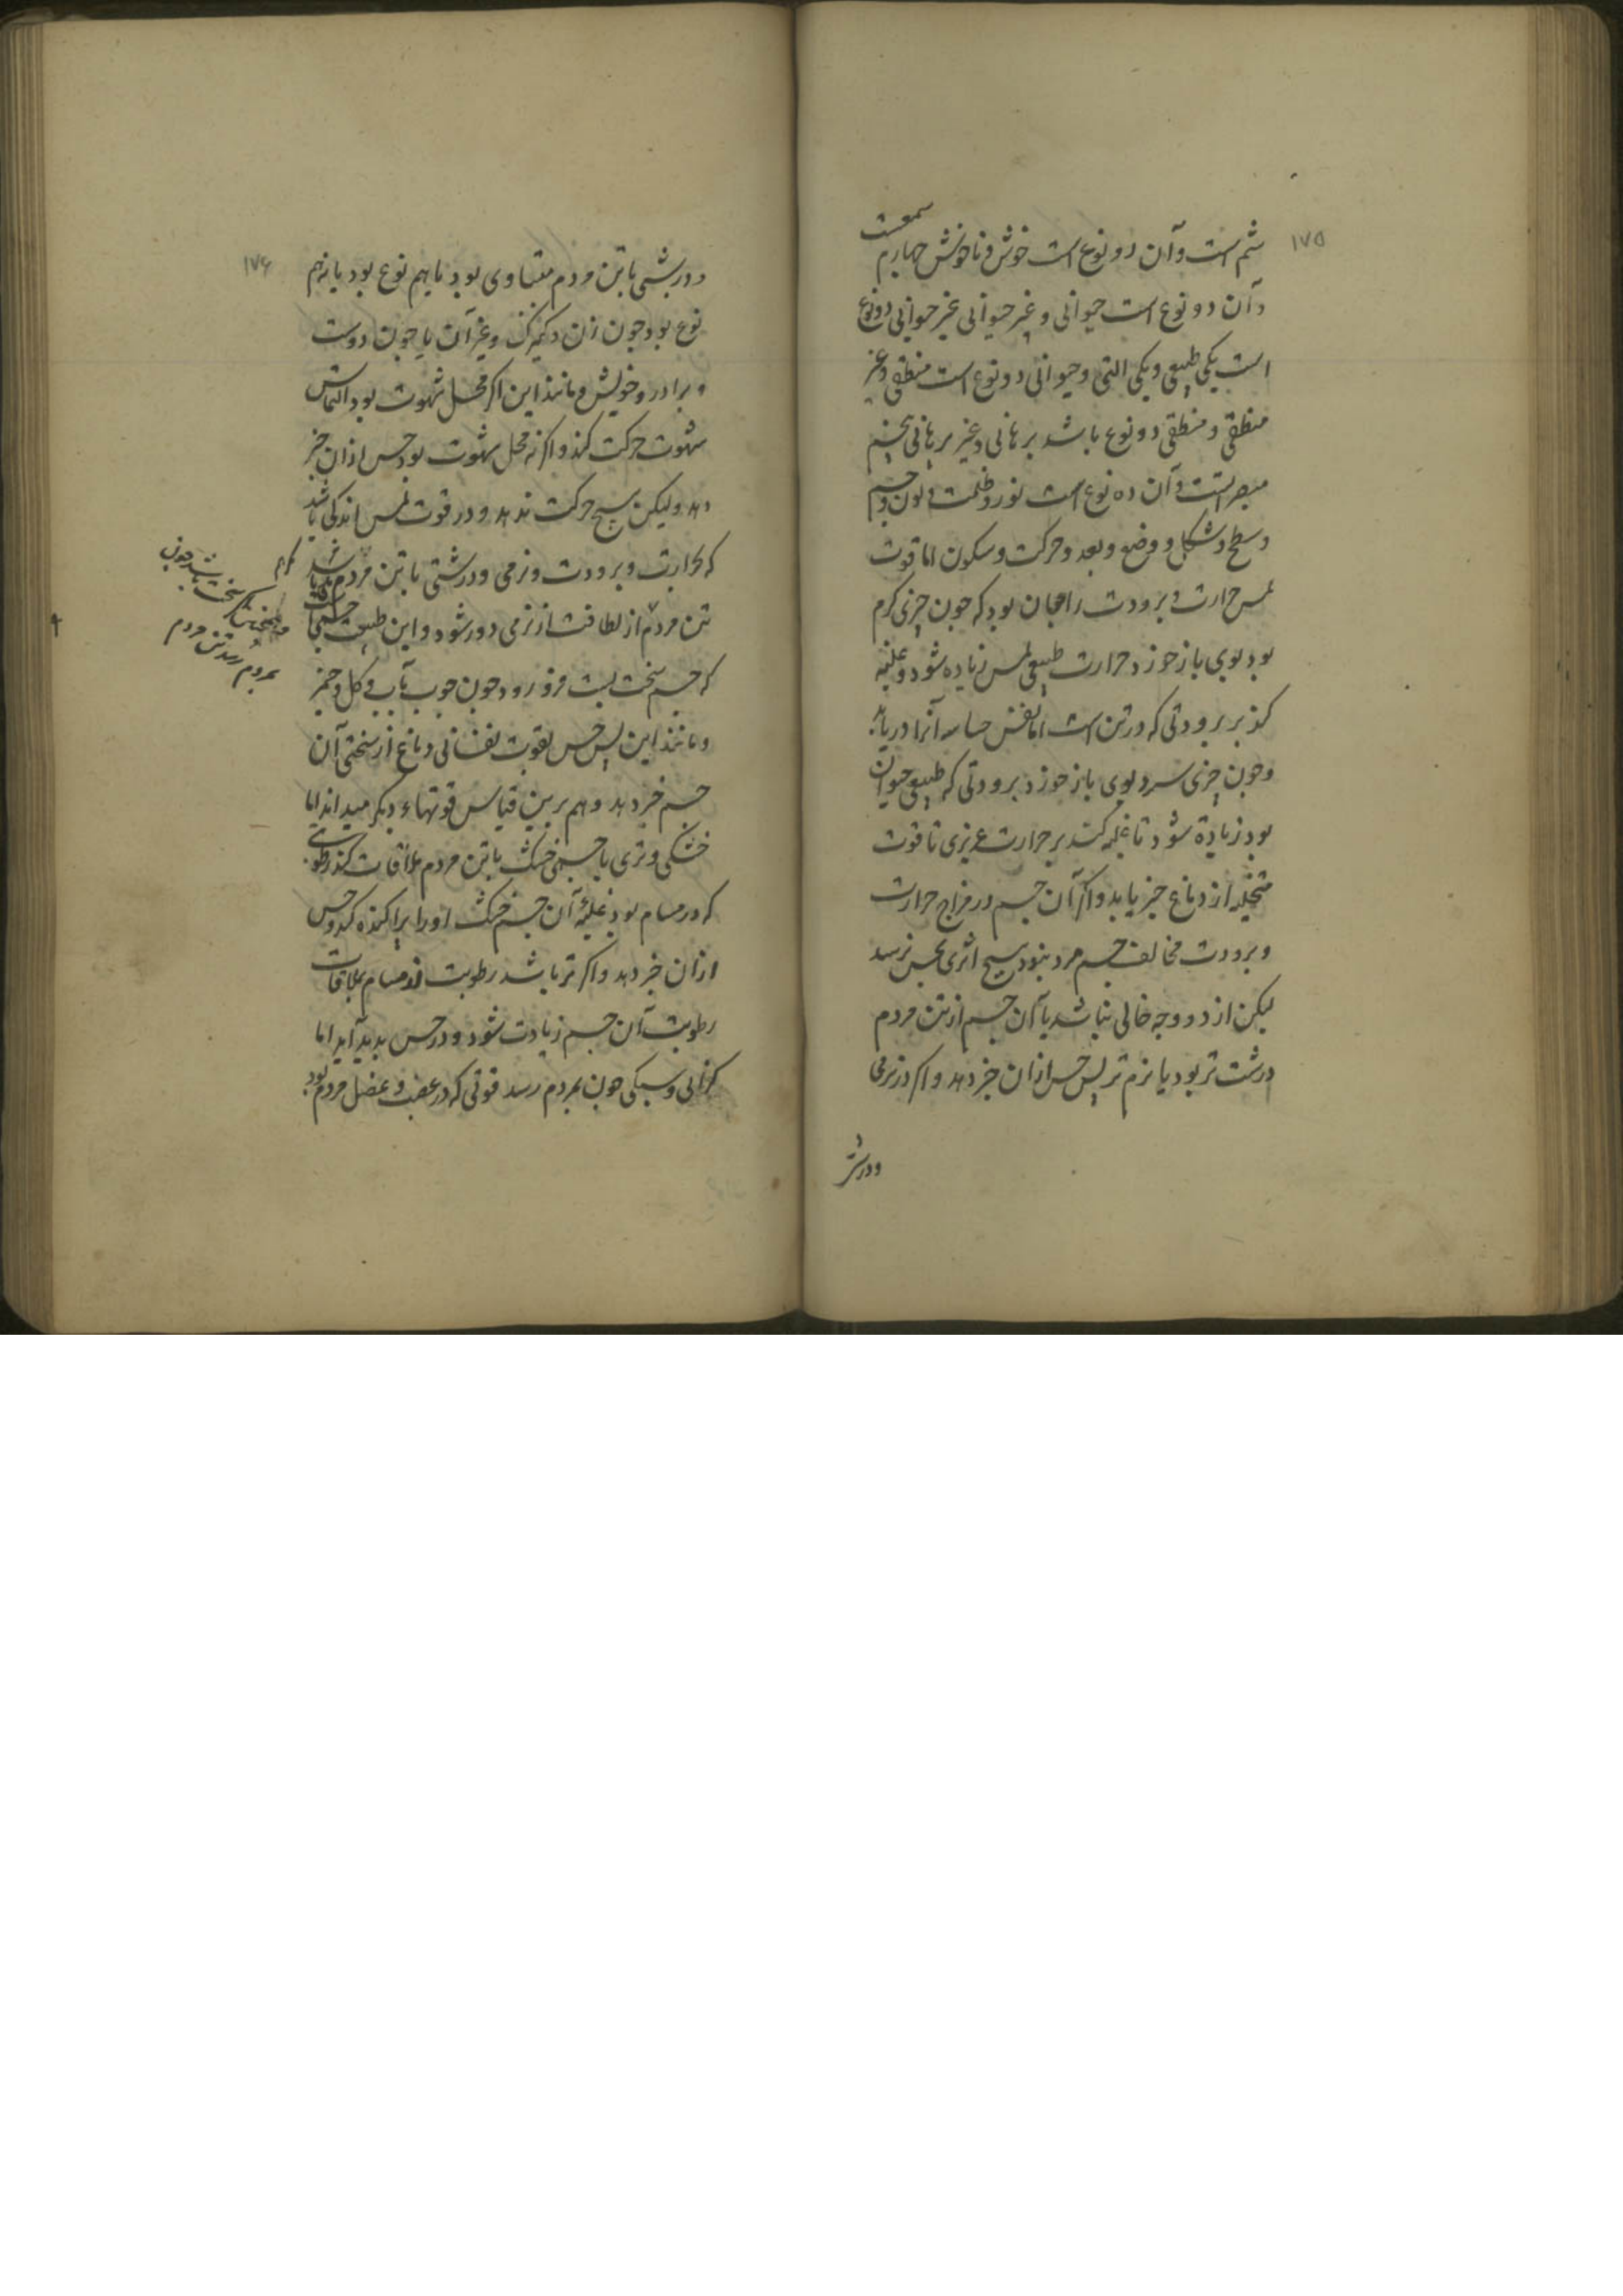 ۱۷۵
شم است وآن دو نوع است خوش وناخوش چهارم سمعست
وآن دو نوع است حیوانی وغیر حیوانی غیر حیوانی دو نوع
است یکی طبیعی ویکی التی وحیوانی دو نوع است منطقی وغیر
منطقی ومنطقی دو نوع باشد برهانی وغیر برهانی پنجم
مبصراتست وآن ده نوع است نور وظلمت ولون وجسم
وسطح وشکل ووضع وبعد وحرکت وسکون اما قوت
لمس حرارت وبرودت را چنان بود که چون چیزی کرم
بود بوی باز خورد حرارت طبیعی لمس زیاده شود وغلبه
کند بر برودتی که در تن است اما نفس حاسه آنرا دریابد
وچون چیزی سرد بوی باز خورد برودتی که طبیعی حیوان
بود زیادة شود تا غلبه کند بر حرارت غریزی تا قوت
متخیله از دماغ خبر یابد واکر آن جسم در مزاج حرارت
وبرودت مخالف جسم مرد نبود هیچ اثری بحس نرسد
لیکن از دو وجه خالی نباشد یا آن جسم از تن مردم
درشت تر بود یا نرم تر پس حس ازان خبر دهد واکر در نرمی
ودرشتی
۱۷۶
ودرشتی با تن مردم متساوی بود یا هم نوع بود یا نه هم
نوع بود چون زن وکنیزک وغیر آن یا چون دوست
وبرادر وخویش ومانند این اکر محل شهوت بود التماس
شهوت حرکت کند واکر نه محل شهوت بود حس ازان خبر
دهد ولیکن هیچ حرکت ندهد ودر قوت لمس اندکی باشد
که بحرارت وبرودت ونرمی ودرشتی با تن مردم
تن مردم از لطافت از نرمی دور شود واین طبیعت
که جسم سخت بست فرو رود چون چوب بآب وکل وخمیر
ومانند این پس حس بقوت نفسانی دماغ از سختی آن
جسم خبر دهد وهم برین قیاس قوتهاء دیکر میداند اما
خشکی وتری با جسمی خشک با تن مردم ملاقات کند رطوبتی
که در مسام بود غلبهٔ آن جسم خشک اورا پراکنده کند وحس
ازان خبر دهد واکر تر باشد رطوبت از مسام بملاقات
رطوبت آن جسم زیادت شود ودر حس پدید آید اما
کرانی وسبکی چون بمردم رسد قوتی که در عصب وعضل مردم بود
سخت باشد چون
بمردم رسد تن مردم